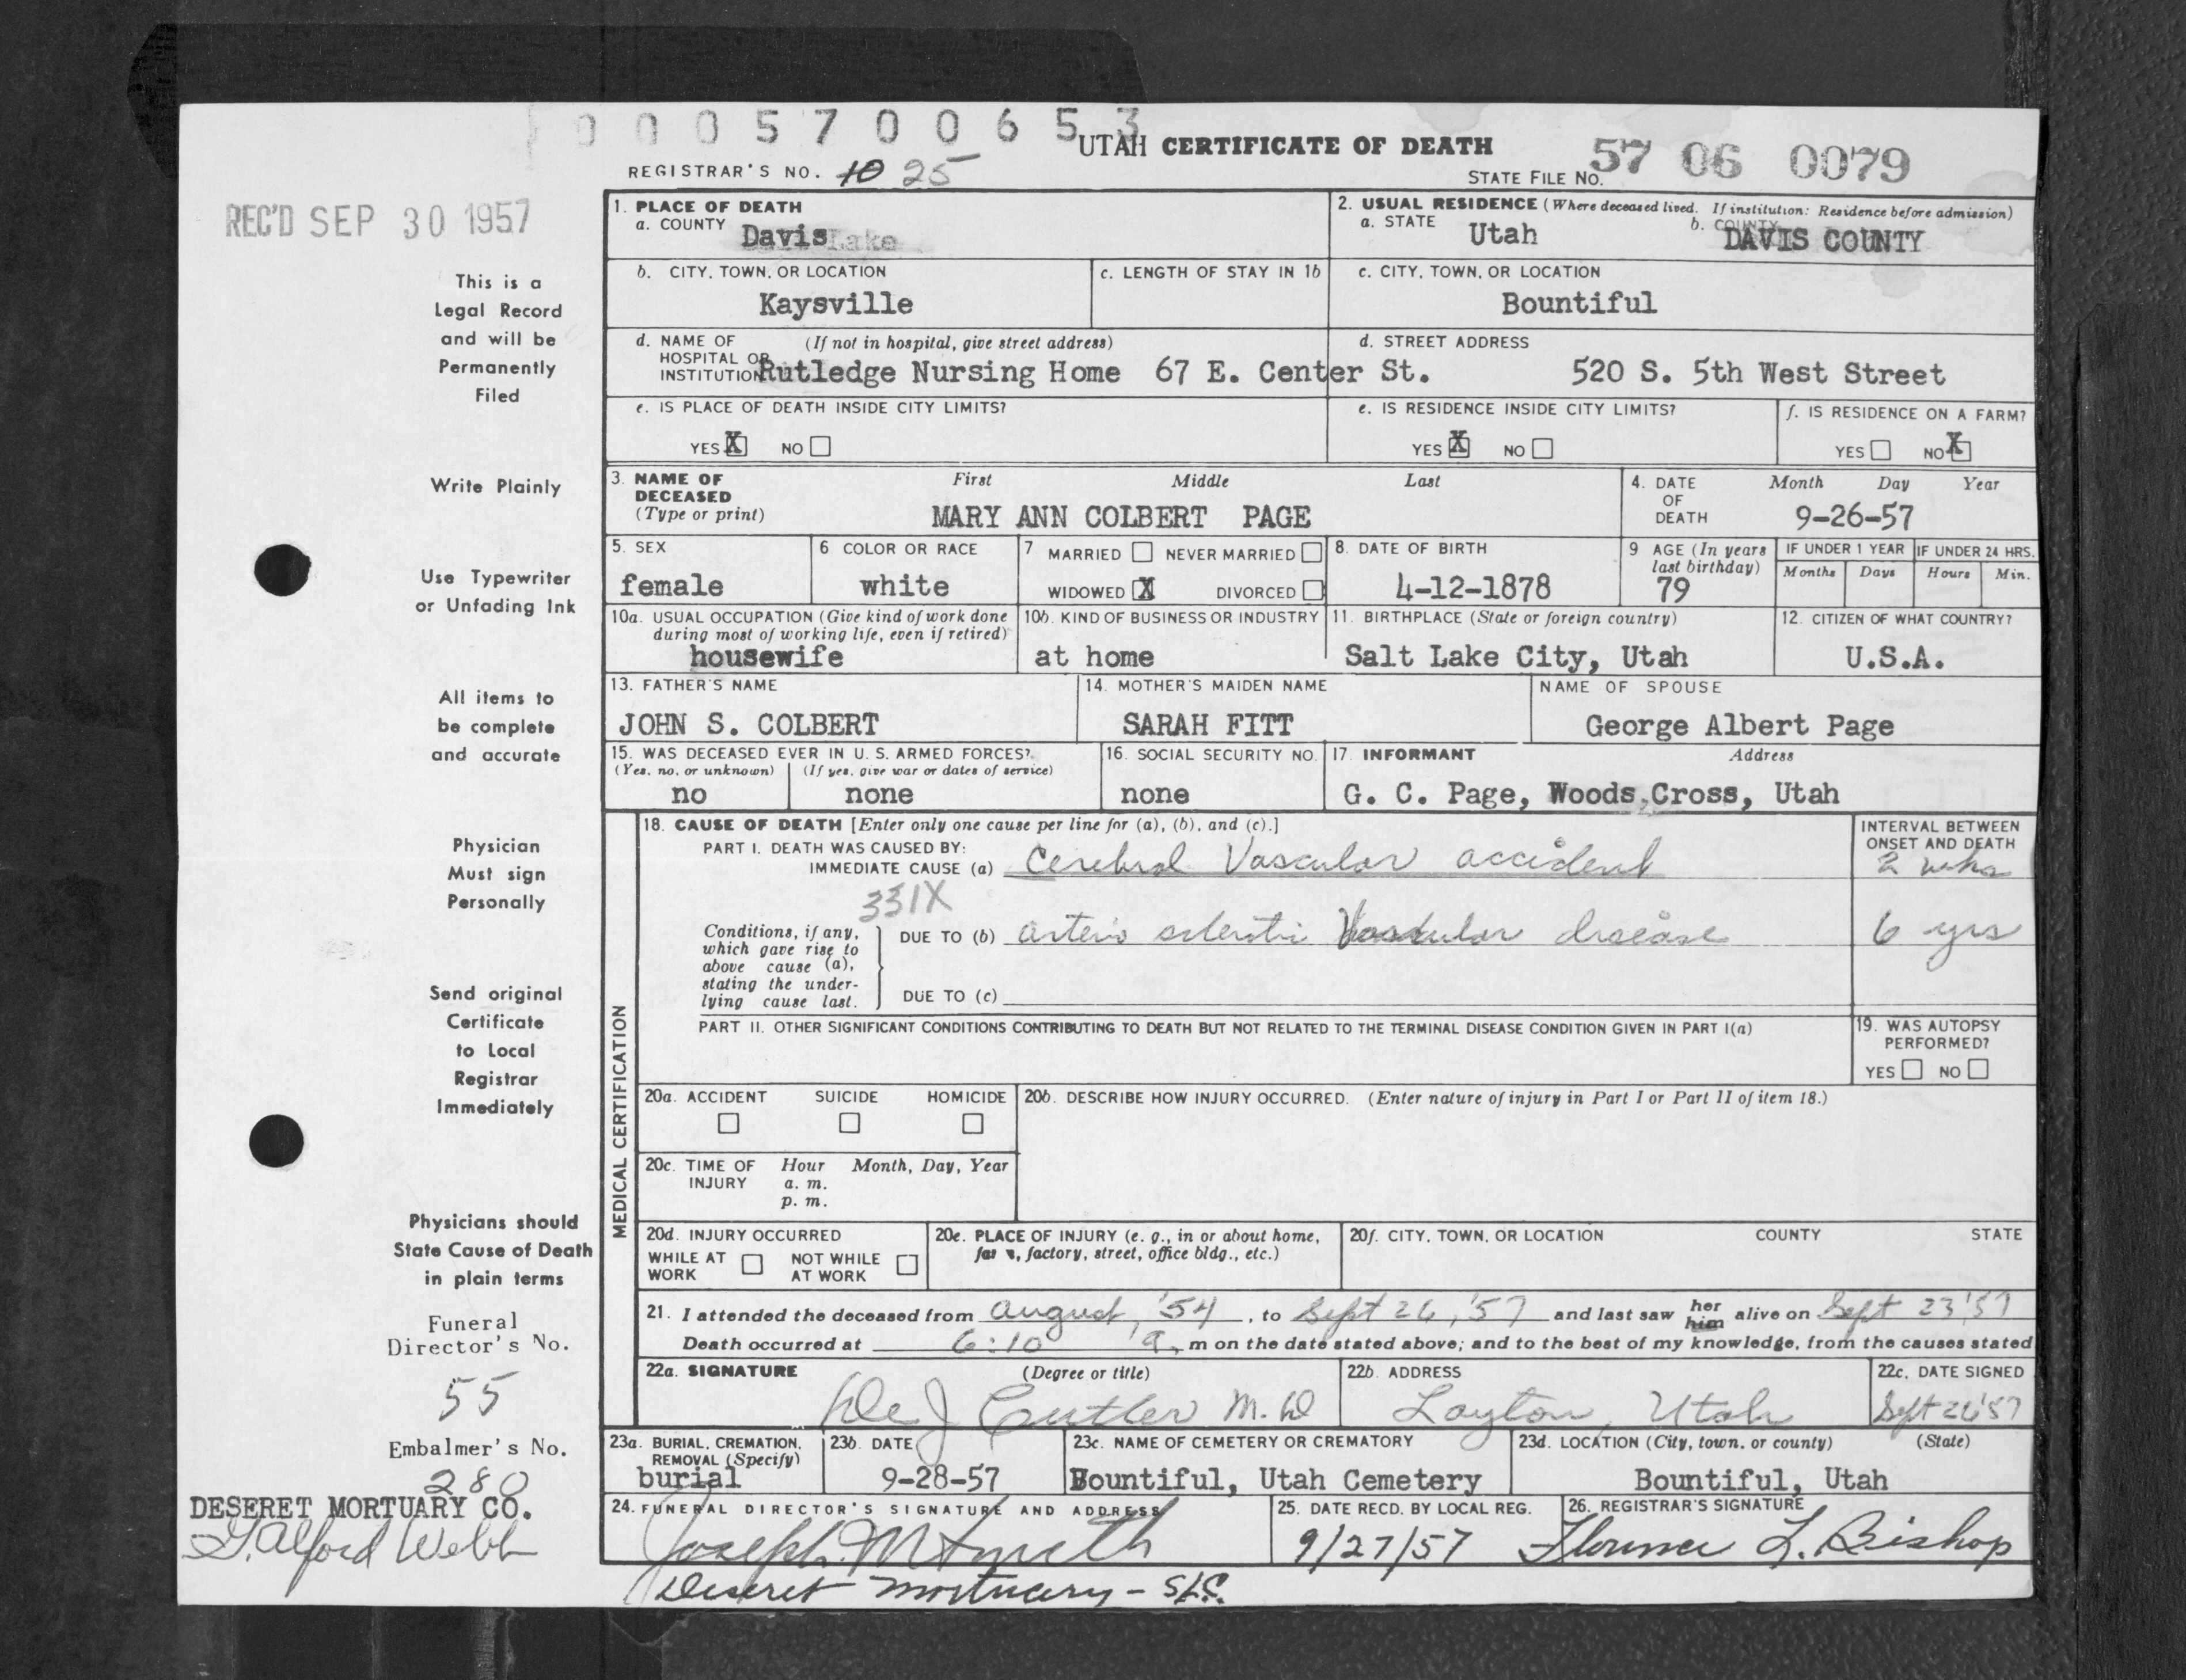 0 0 0 5 7 0 0 6 5 3
UTAH CERTIFICATE OF DEATH
REGISTRAR'S NO. 10 25
STATE FILE NO. 57 06 0079
REC'D SEP 30 1957
This is a
Legal Record
and will be
Permanently
Filed
Write Plainly
Use Typewriter
or Unfading Ink
All items to
be complete
and accurate
Physician
Must sign
Personally
Send original
Certificate
to Local
Registrar
Immediately
Physicians should
State Cause of Death
in plain terms
Funeral
Director's No.
55
Embalmer's No.
280
DESERET MORTUARY CO.
G. Alford Webb
1. PLACE OF DEATH
a. COUNTY Davis Lake
2. USUAL RESIDENCE (Where deceased lived. If institution: Residence before admission)
a. STATE Utah b. COUNTY DAVIS COUNTY
b. CITY, TOWN, OR LOCATION
Kaysville
c. LENGTH OF STAY IN 1b
c. CITY, TOWN, OR LOCATION
Bountiful
d. NAME OF HOSPITAL OR INSTITUTION (If not in hospital, give street address)
Rutledge Nursing Home 67 E. Center St.
d. STREET ADDRESS
520 S. 5th West Street
e. IS PLACE OF DEATH INSIDE CITY LIMITS?
YES X NO
e. IS RESIDENCE INSIDE CITY LIMITS?
YES X NO
f. IS RESIDENCE ON A FARM?
YES NO X
3. NAME OF DECEASED (Type or print)
First Middle Last
MARY ANN COLBERT PAGE
4. DATE OF DEATH
Month Day Year
9-26-57
5. SEX
female
6 COLOR OR RACE
white
7 MARRIED NEVER MARRIED
WIDOWED X DIVORCED
8. DATE OF BIRTH
4-12-1878
9 AGE (In years last birthday)
79
IF UNDER 1 YEAR
Months Days
IF UNDER 24 HRS.
Hours Min.
10a. USUAL OCCUPATION (Give kind of work done
during most of working life, even if retired)
housewife
10b. KIND OF BUSINESS OR INDUSTRY
at home
11. BIRTHPLACE (State or foreign country)
Salt Lake City, Utah
12. CITIZEN OF WHAT COUNTRY?
U.S.A.
13. FATHER'S NAME
JOHN S. COLBERT
14. MOTHER'S MAIDEN NAME
SARAH FITT
NAME OF SPOUSE
George Albert Page
15. WAS DECEASED EVER IN U. S. ARMED FORCES?
(Yes, no, or unknown) (If yes, give war or dates of service)
no none
16. SOCIAL SECURITY NO.
none
17. INFORMANT Address
G. C. Page, Woods Cross, Utah
MEDICAL CERTIFICATION
18. CAUSE OF DEATH [Enter only one cause per line for (a), (b), and (c).]
PART I. DEATH WAS CAUSED BY:
IMMEDIATE CAUSE (a) Cerebral Vascular accident
INTERVAL BETWEEN
ONSET AND DEATH
2 wks
331X
Conditions, if any,
which gave rise to
above cause (a),
stating the under-
lying cause last.
DUE TO (b) arterio sclerotic Vascular disease
6 yrs
DUE TO (c)
PART II. OTHER SIGNIFICANT CONDITIONS CONTRIBUTING TO DEATH BUT NOT RELATED TO THE TERMINAL DISEASE CONDITION GIVEN IN PART I(a)
19. WAS AUTOPSY
PERFORMED?
YES NO
20a. ACCIDENT SUICIDE HOMICIDE
20b. DESCRIBE HOW INJURY OCCURRED. (Enter nature of injury in Part I or Part II of item 18.)
20c. TIME OF INJURY Hour Month, Day, Year
a. m.
p. m.
20d. INJURY OCCURRED
WHILE AT WORK NOT WHILE AT WORK
20e. PLACE OF INJURY (e. g., in or about home,
farm, factory, street, office bldg., etc.)
20f. CITY, TOWN, OR LOCATION COUNTY STATE
21. I attended the deceased from August, '54, to Sept 26, '57 and last saw her him alive on Sept 23, '57
Death occurred at 6:10 a. m on the date stated above; and to the best of my knowledge, from the causes stated
22a. SIGNATURE (Degree or title)
Cutler M.D
22b. ADDRESS
Layton, Utah
22c. DATE SIGNED
Sept 26 '57
23a. BURIAL, CREMATION,
REMOVAL (Specify)
burial
23b. DATE
9-28-57
23c. NAME OF CEMETERY OR CREMATORY
Bountiful, Utah Cemetery
23d. LOCATION (City, town, or county) (State)
Bountiful, Utah
24. FUNERAL DIRECTOR'S SIGNATURE AND ADDRESS
Joseph M Smith
Deseret Mortuary - SLC.
25. DATE RECD. BY LOCAL REG.
9/27/57
26. REGISTRAR'S SIGNATURE
Florence L. Bishop